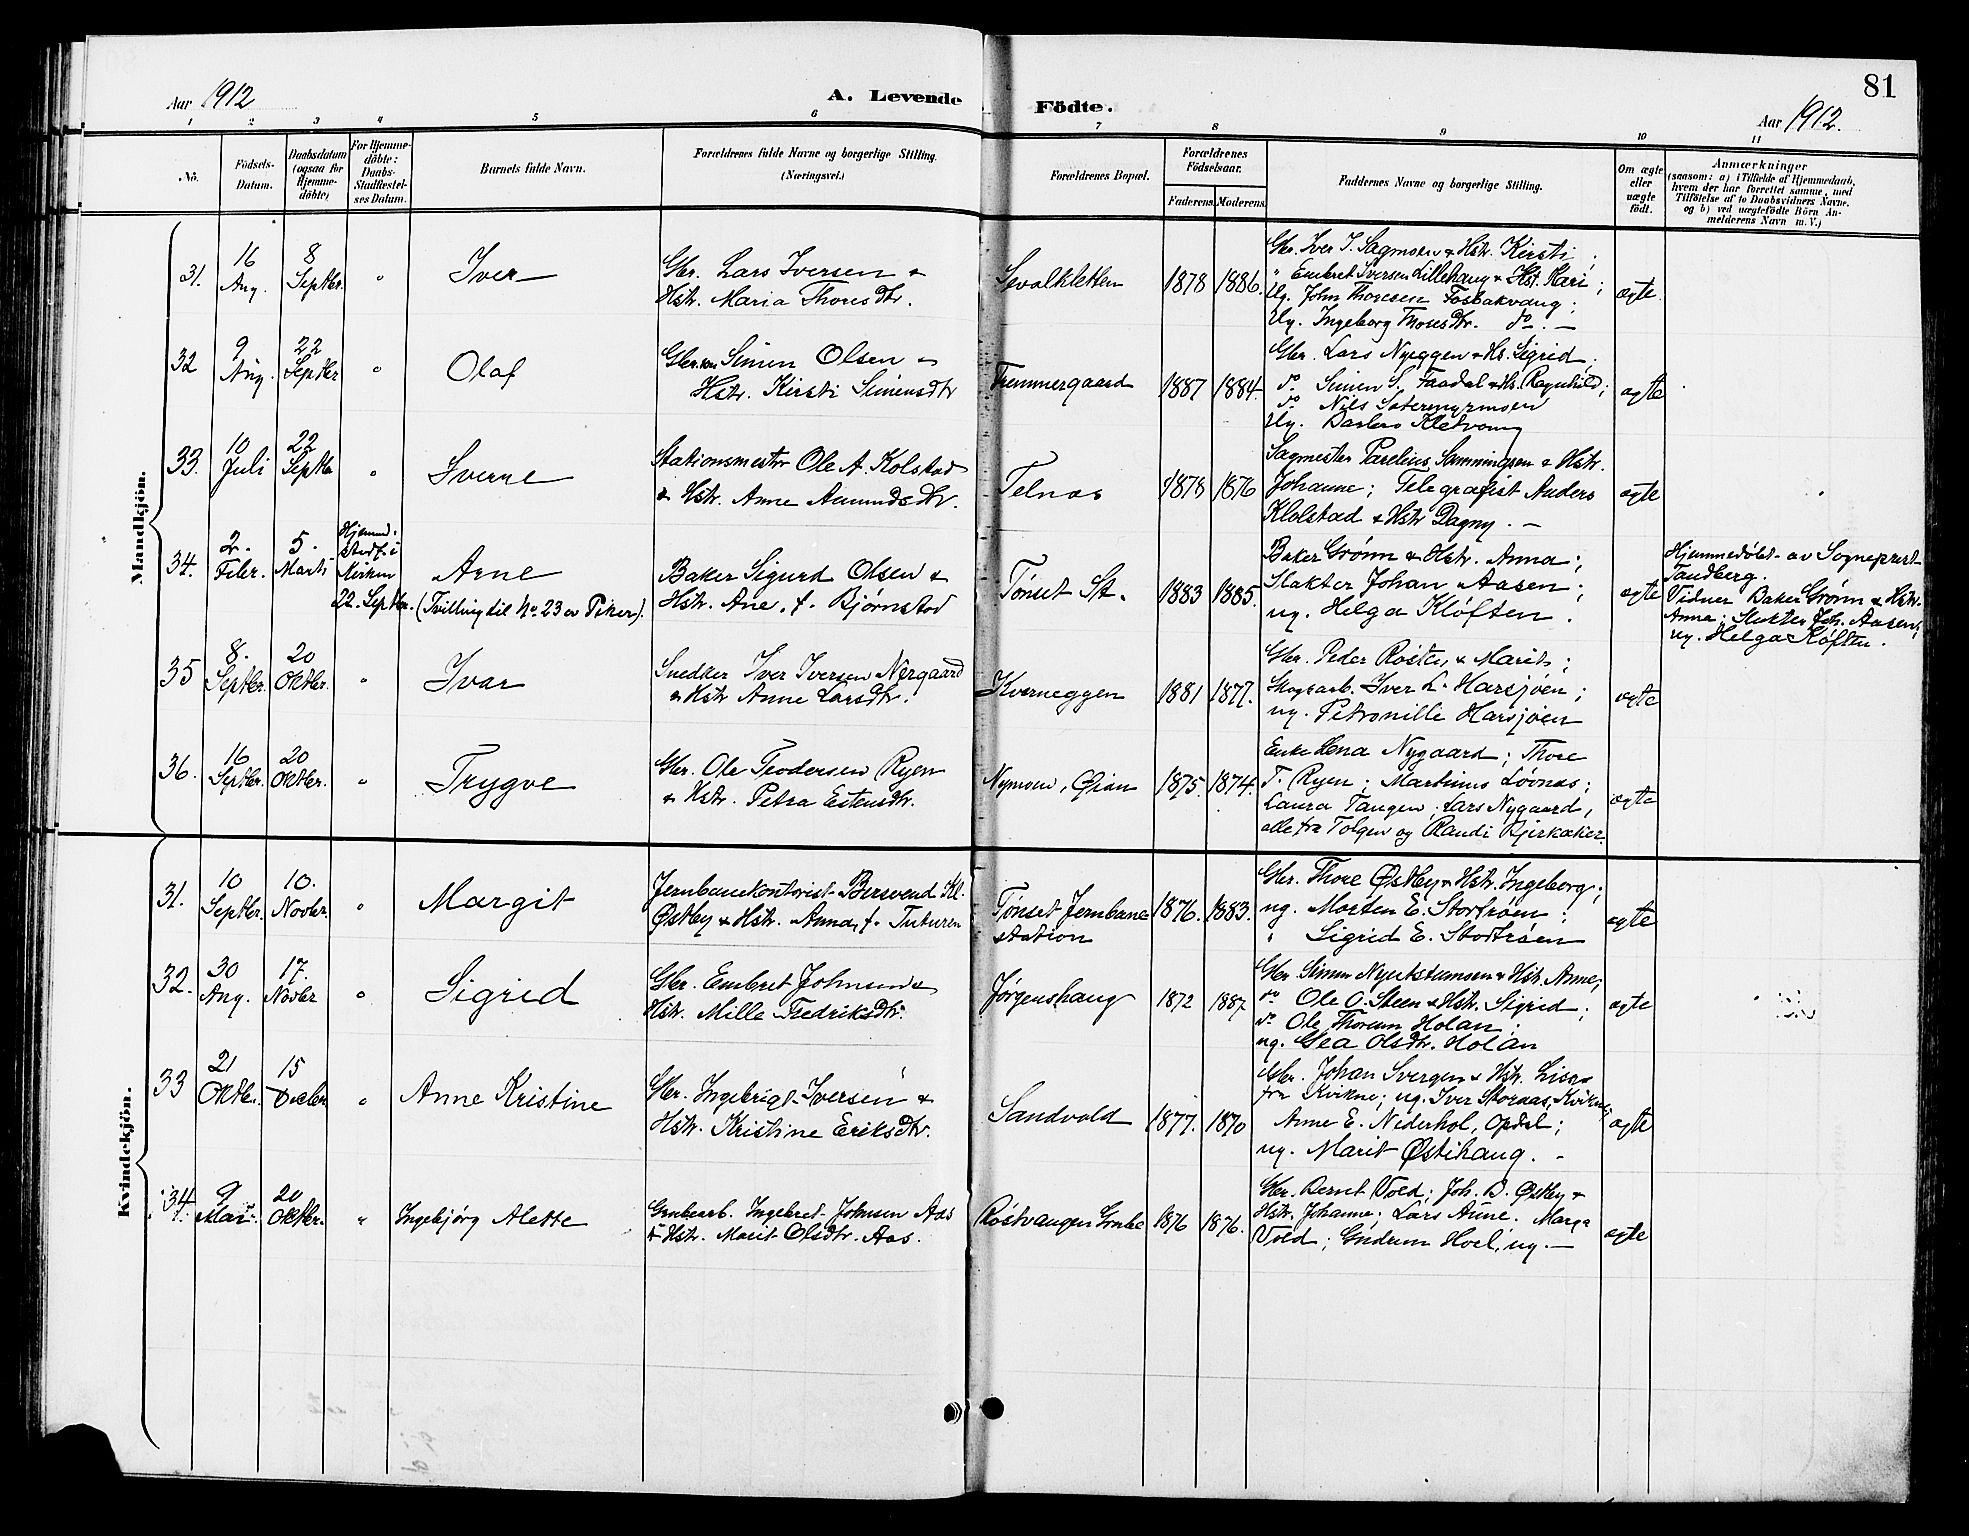 81
Aar 1912
A. Levende Födte.
Aar 1912.
1 2 3 4 5 6 7 8 9 10 11
No.
Födsels-Datum.
Daabsdatum (ogsaa for Hjemme-döbte)
For Hjemme-döbte: Daabs-Stadfæstel-ses Datum.
Barnets fulde Navn.
Forældrenes fulde Navne og borgerlige Stilling. (Næringsvei.)
Forældrenes Bopæl.
Forældrenes Födselsaar.
Faderens. Moderens.
Faddernes Navne og borgerlige Stilling.
Om ægte eller uægte födt.
Anmærkninger
(saasom: a) i Tilfælde af Hjemmedaab,
hvem der har forrettet samme, med
Tilföielse af to Daabsvidners Navne.
og b) ved uægtefödte Börn An-
melderens Navn m. V.)
Mandkjön.
31. 16 Aug. 8 Septbr. " Iver
Gbr. Lars Iversen &
Hstr. Maria Thoresdtr.
Sevalkletten 1878 1886.
Gbr. Iver I. Sagmoen & Hstr. Kirsti;
" Embret Iversen Lillehaug & Hst. Kari;
Ug. John Thoresen Fosbakvang;
Ug. Ingeborg Thoresdtr. do. —
ægte
32 9 Aug. 22 Septbr " Olaf
Simen Olsen &
Hstr. Kirsti Simensdtr
Tremmergaard 1887 1884.
Gbr. Lars Nyeggen & Hs. Sigrid;
do Simen S. Faadal & Hs. Ragnhild;
do Nils Sætermyrmoen
Ug. Kletvang
ægte
33. 10 Juli 22 Septbr " Sverre
Stationsmester Ole A. Kolstad
& Hstr. Anne Aamundsdtr.
Telnæs 1878 1876
Sagmester Parelius Sammingsen & Hstr.
Johanne; Telegrafist Anders
Klolstad & Hstr Dagny. —
ægte
34. 2. Febr. 5. Marts
Hjemmed: stadf. i Kirken 22. Septbr.
Arne
(Tvilling til No. 23 av Piker).
Baker Sigurd Olsen &
Hstr. Ane, f. Bjørnstad
Tønset St. 1883 1885.
Baker Grønn & Hstr. Anna;
Slakter Johan Aasen;
ug. Helga Kløften.
ægte
Hjemmedøbt av Sogneprest
Tandberg.
Vidner Baker Grønn & Hstr.
Anna; Slakter Joh. Aasen;
ug. Helga Kløften.
35 8. Septbr. 20 Oktbr. " Ivar
Snedker Iver Iversen Nergaard
& Hstr Anne Larsdtr.
Kverneggen 1881 1877.
Gbr. Peder Røste, & Marit;
Skogsarb. Iver L. Harsjøen;
ug. Petronille Harsjøen
ægte
36. 16 Septbr. 20 Oktbr. " Trygve
Gbr. Ole Teodersen Ryen
& Hstr. Petra Estensdtr.
Nymoen, Øian 1875. 1874.
Enke Lena Nygaard; Thore
T. Ryen; Martinus Løvnæs;
Laura Tangen; Lars Nygaard,
alle fra Tolgen og Randi Bjerkaker.
ægte
Kvindekjön.
31. 10 Septbr. 10. Novbr. " Margit
Jernbanekontorist Bersvend Kl.
Østby & Hstr. Anna, f. Tuturen
Tønset Jernbane
station 1876. 1883.
Gbr. Thore Østby & Hstr. Ingeborg;
ug. Morten E. Stortrøen;
" Sigrid E. Stortrøen
ægte
32. 30 Aug. 17. Novbr " Sigrid
Gbr. Embret Johnsen &
Hstr. Mille Fredriksdtr.
Jørgenshaug 1872 1887
Gbr Simen & Hstr. Anne;
do Ole O. Steen & Hstr. Sigrid;
do Ole Thoresen Holan;
ug. Gea Olsdtr. Holan
ægte
33 21 Oktbr. 15 Decbr. " Anne Kristine
Gbr. Ingebrigt Iversen &
Hstr. Kristine Eriksdtr.
Sandvold 1877. 1870
Gbr. Johan Svergen & Hstr. Lisa
fra Kvikne; ug. Iver Stornæs, Kvikne;
Anne E. Nederhol, Opdal;
ug. Marit Østihaug. -
ægte
34. 9 Mai 20 Oktbr. " Ingebjørg Alette
Grubearb. Ingebret Johnsen Aas
& Hstr. Marit Olsdtr. Aas.
Røstvangen Grube 1876 1876.
Gbr. Bernt Vold; Joh. B. Østby &
Hstr. Johanne; Lars Aune; Marga
Vold; Gudrun Hoel, ug. —
ægte